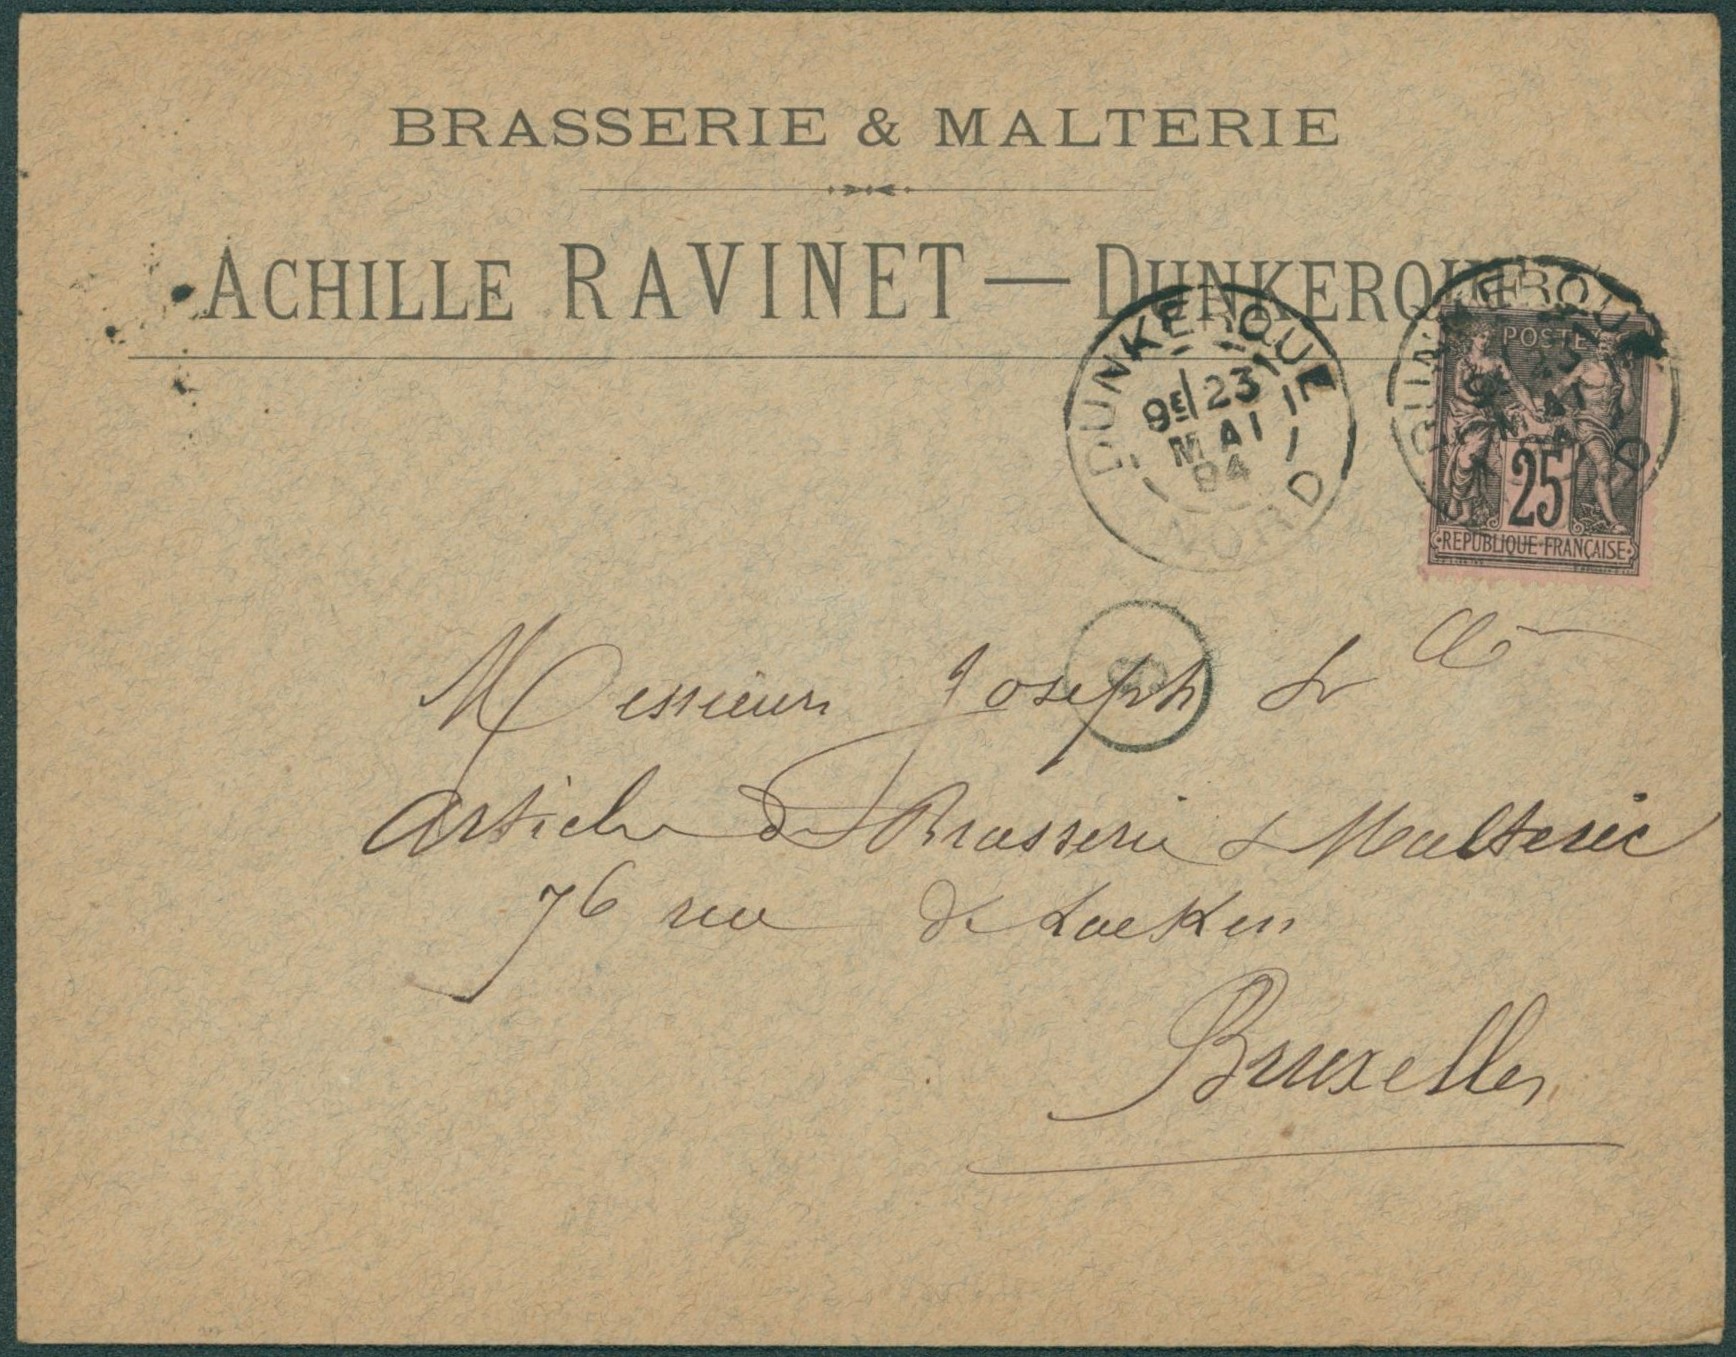 BRASSERIE & MALTERIE
ACHILLE RAVINET — DUNKERQUE
DUNKERQUE
9E 23
MAI
94
NORD
POSTES
25
REPUBLIQUE FRANÇAISE
Messieurs Joseph & Cie
Articles de Brasserie & Malterie
76 rue de Laeken
Bruxelles